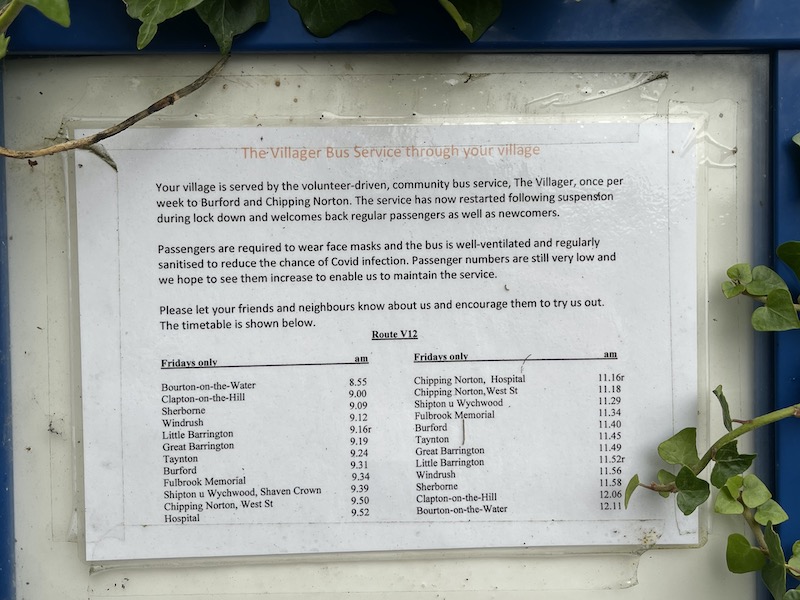 The Villager Bus Service through your village
Your village is served by the volunteer-driven, community bus service, The Villager, once per
week to Burford and Chipping Norton. The service has now restarted following suspension
during lock down and welcomes back regular passengers as well as newcomers.
Passengers are required to wear face masks and the bus is well-ventilated and regularly
sanitised to reduce the chance of Covid infection. Passenger numbers are still very low and
we hope to see them increase to enable us to maintain the service.
Please let your friends and neighbours know about us and encourage them to try us out.
The timetable is shown below.
Route V12
Fridays only am
Bourton-on-the-Water 8.55
Clapton-on-the-Hill 9.00
Sherborne 9.09
Windrush 9.12
Little Barrington 9.16r
Great Barrington 9.19
Taynton 9.24
Burford 9.31
Fulbrook Memorial 9.34
Shipton u Wychwood, Shaven Crown 9.39
Chipping Norton, West St 9.50
Hospital 9.52
Fridays only am
Chipping Norton, Hospital 11.16r
Chipping Norton,West St 11.18
Shipton u Wychwood 11.29
Fulbrook Memorial 11.34
Burford 11.40
Taynton 11.45
Great Barrington 11.49
Little Barrington 11.52r
Windrush 11.56
Sherborne 11.58
Clapton-on-the-Hill 12.06
Bourton-on-the-Water 12.11